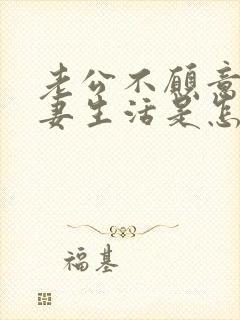 老公不愿意
妻生活是怎
福基